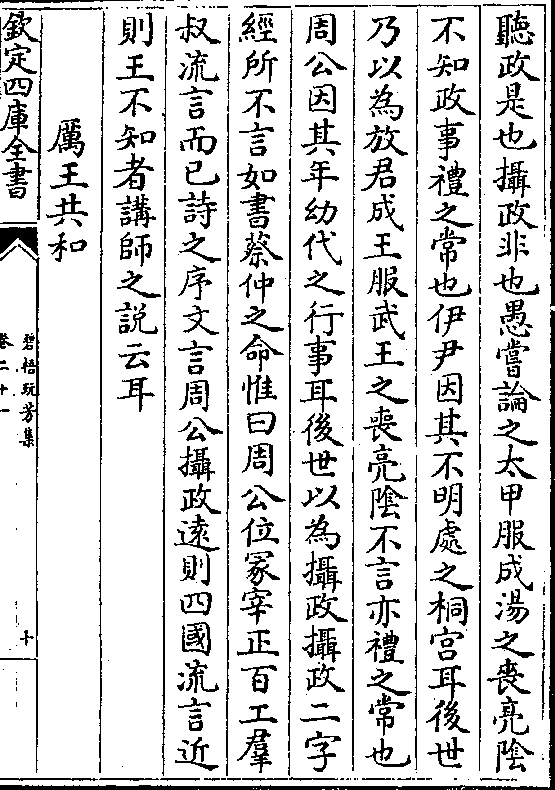 聽政是也攝政非也愚嘗論之太甲服成湯之喪亮陰
不知政事禮之常也伊尹因其不明處之桐宮耳後世
乃以為放君成王服武王之喪亮陰不言亦禮之常也
周公因其年幼代之行事耳後世以為攝政攝政二字
經所不言如書蔡仲之命惟曰周公位冢宰正百工羣
叔流言而已詩之序文言周公攝政遠則四國流言近
則王不知者講師之説云耳
厲王共和
欽定四庫全書
碧梧玩芳集
卷二十一
十